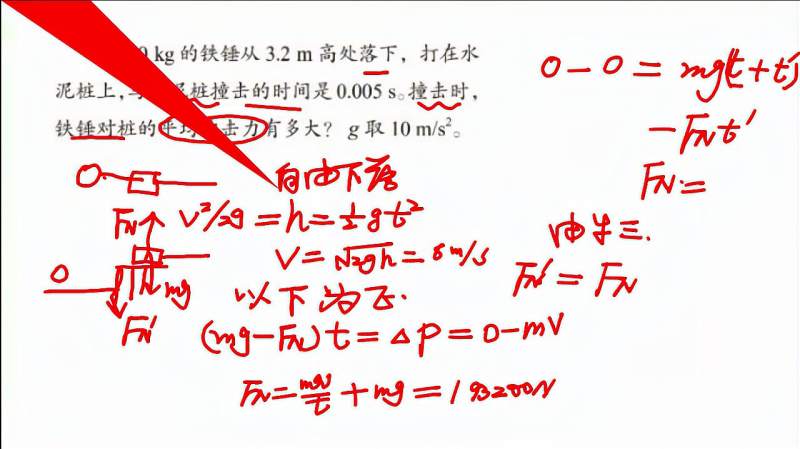 0 kg 的铁锤从 3.2 m 高处落下，打在水
泥桩上，与 桩撞击的时间是 0.005 s。撞击时，
铁锤对桩的平均 击力有多大？ g 取 10 m/s²。
自由下落
F_N V²/2g = h = ½gt²
V = √2gh = 8 m/s
0 mg 以下为正.
F_N' (mg-F_N)t = △P = 0-mV
F_N = mv/t + mg = 193200N
0 - 0 = mg(t+t')
-F_N t'
F_N =
由牛三.
F_N' = F_N